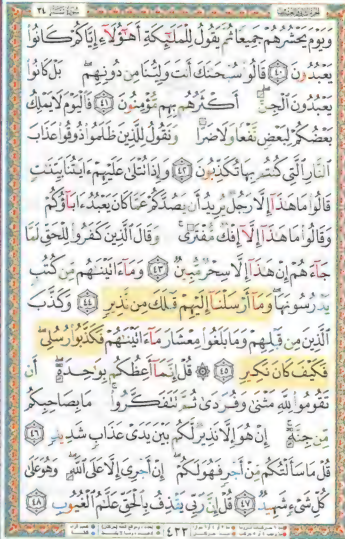 سُورَةُ سَبَإٍ ٣٤
وَيَوْمَ يَحْشُرُهُمْ جَمِيعًا ثُمَّ يَقُولُ لِلْمَلَٰٓئِكَةِ أَهَٰٓؤُلَآءِ إِيَّاكُمْ كَانُوا۟
يَعْبُدُونَ ٤٠ قَالُوا۟ سُبْحَٰنَكَ أَنتَ وَلِيُّنَا مِن دُونِهِم ۖ بَلْ كَانُوا۟
يَعْبُدُونَ ٱلْجِنَّ ۖ أَكْثَرُهُم بِهِم مُّؤْمِنُونَ ٤١ فَٱلْيَوْمَ لَا يَمْلِكُ
بَعْضُكُمْ لِبَعْضٍ نَّفْعًا وَلَا ضَرًّا وَنَقُولُ لِلَّذِينَ ظَلَمُوا۟ ذُوقُوا۟ عَذَابَ
ٱلنَّارِ ٱلَّتِى كُنتُم بِهَا تُكَذِّبُونَ ٤٢ وَإِذَا تُتْلَىٰ عَلَيْهِمْ ءَايَٰتُنَا بَيِّنَٰتٍ
قَالُوا۟ مَا هَٰذَآ إِلَّا رَجُلٌ يُرِيدُ أَن يَصُدَّكُمْ عَمَّا كَانَ يَعْبُدُ ءَابَآؤُكُمْ
وَقَالُوا۟ مَا هَٰذَآ إِلَّآ إِفْكٌ مُّفْتَرًى ۚ وَقَالَ ٱلَّذِينَ كَفَرُوا۟ لِلْحَقِّ لَمَّا
جَآءَهُمْ إِنْ هَٰذَآ إِلَّا سِحْرٌ مُّبِينٌ ٤٣ وَمَآ ءَاتَيْنَٰهُم مِّن كُتُبٍ
يَدْرُسُونَهَا ۖ وَمَآ أَرْسَلْنَآ إِلَيْهِمْ قَبْلَكَ مِن نَّذِيرٍ ٤٤ وَكَذَّبَ
ٱلَّذِينَ مِن قَبْلِهِمْ وَمَا بَلَغُوا۟ مِعْشَارَ مَآ ءَاتَيْنَٰهُمْ فَكَذَّبُوا۟ رُسُلِى ۖ
فَكَيْفَ كَانَ نَكِيرِ ٤٥ ۞ قُلْ إِنَّمَآ أَعِظُكُم بِوَٰحِدَةٍ ۖ أَن
تَقُومُوا۟ لِلَّهِ مَثْنَىٰ وَفُرَٰدَىٰ ثُمَّ تَتَفَكَّرُوا۟ ۚ مَا بِصَاحِبِكُم
مِّن جِنَّةٍ ۚ إِنْ هُوَ إِلَّا نَذِيرٌ لَّكُم بَيْنَ يَدَىْ عَذَابٍ شَدِيدٍ ٤٦
قُلْ مَا سَأَلْتُكُم مِّنْ أَجْرٍ فَهُوَ لَكُمْ ۖ إِنْ أَجْرِىَ إِلَّا عَلَى ٱللَّهِ ۖ وَهُوَ عَلَىٰ
كُلِّ شَىْءٍ شَهِيدٌ ٤٧ قُلْ إِنَّ رَبِّى يَقْذِفُ بِٱلْحَقِّ عَلَّٰمُ ٱلْغُيُوبِ ٤٨
٤٣٣